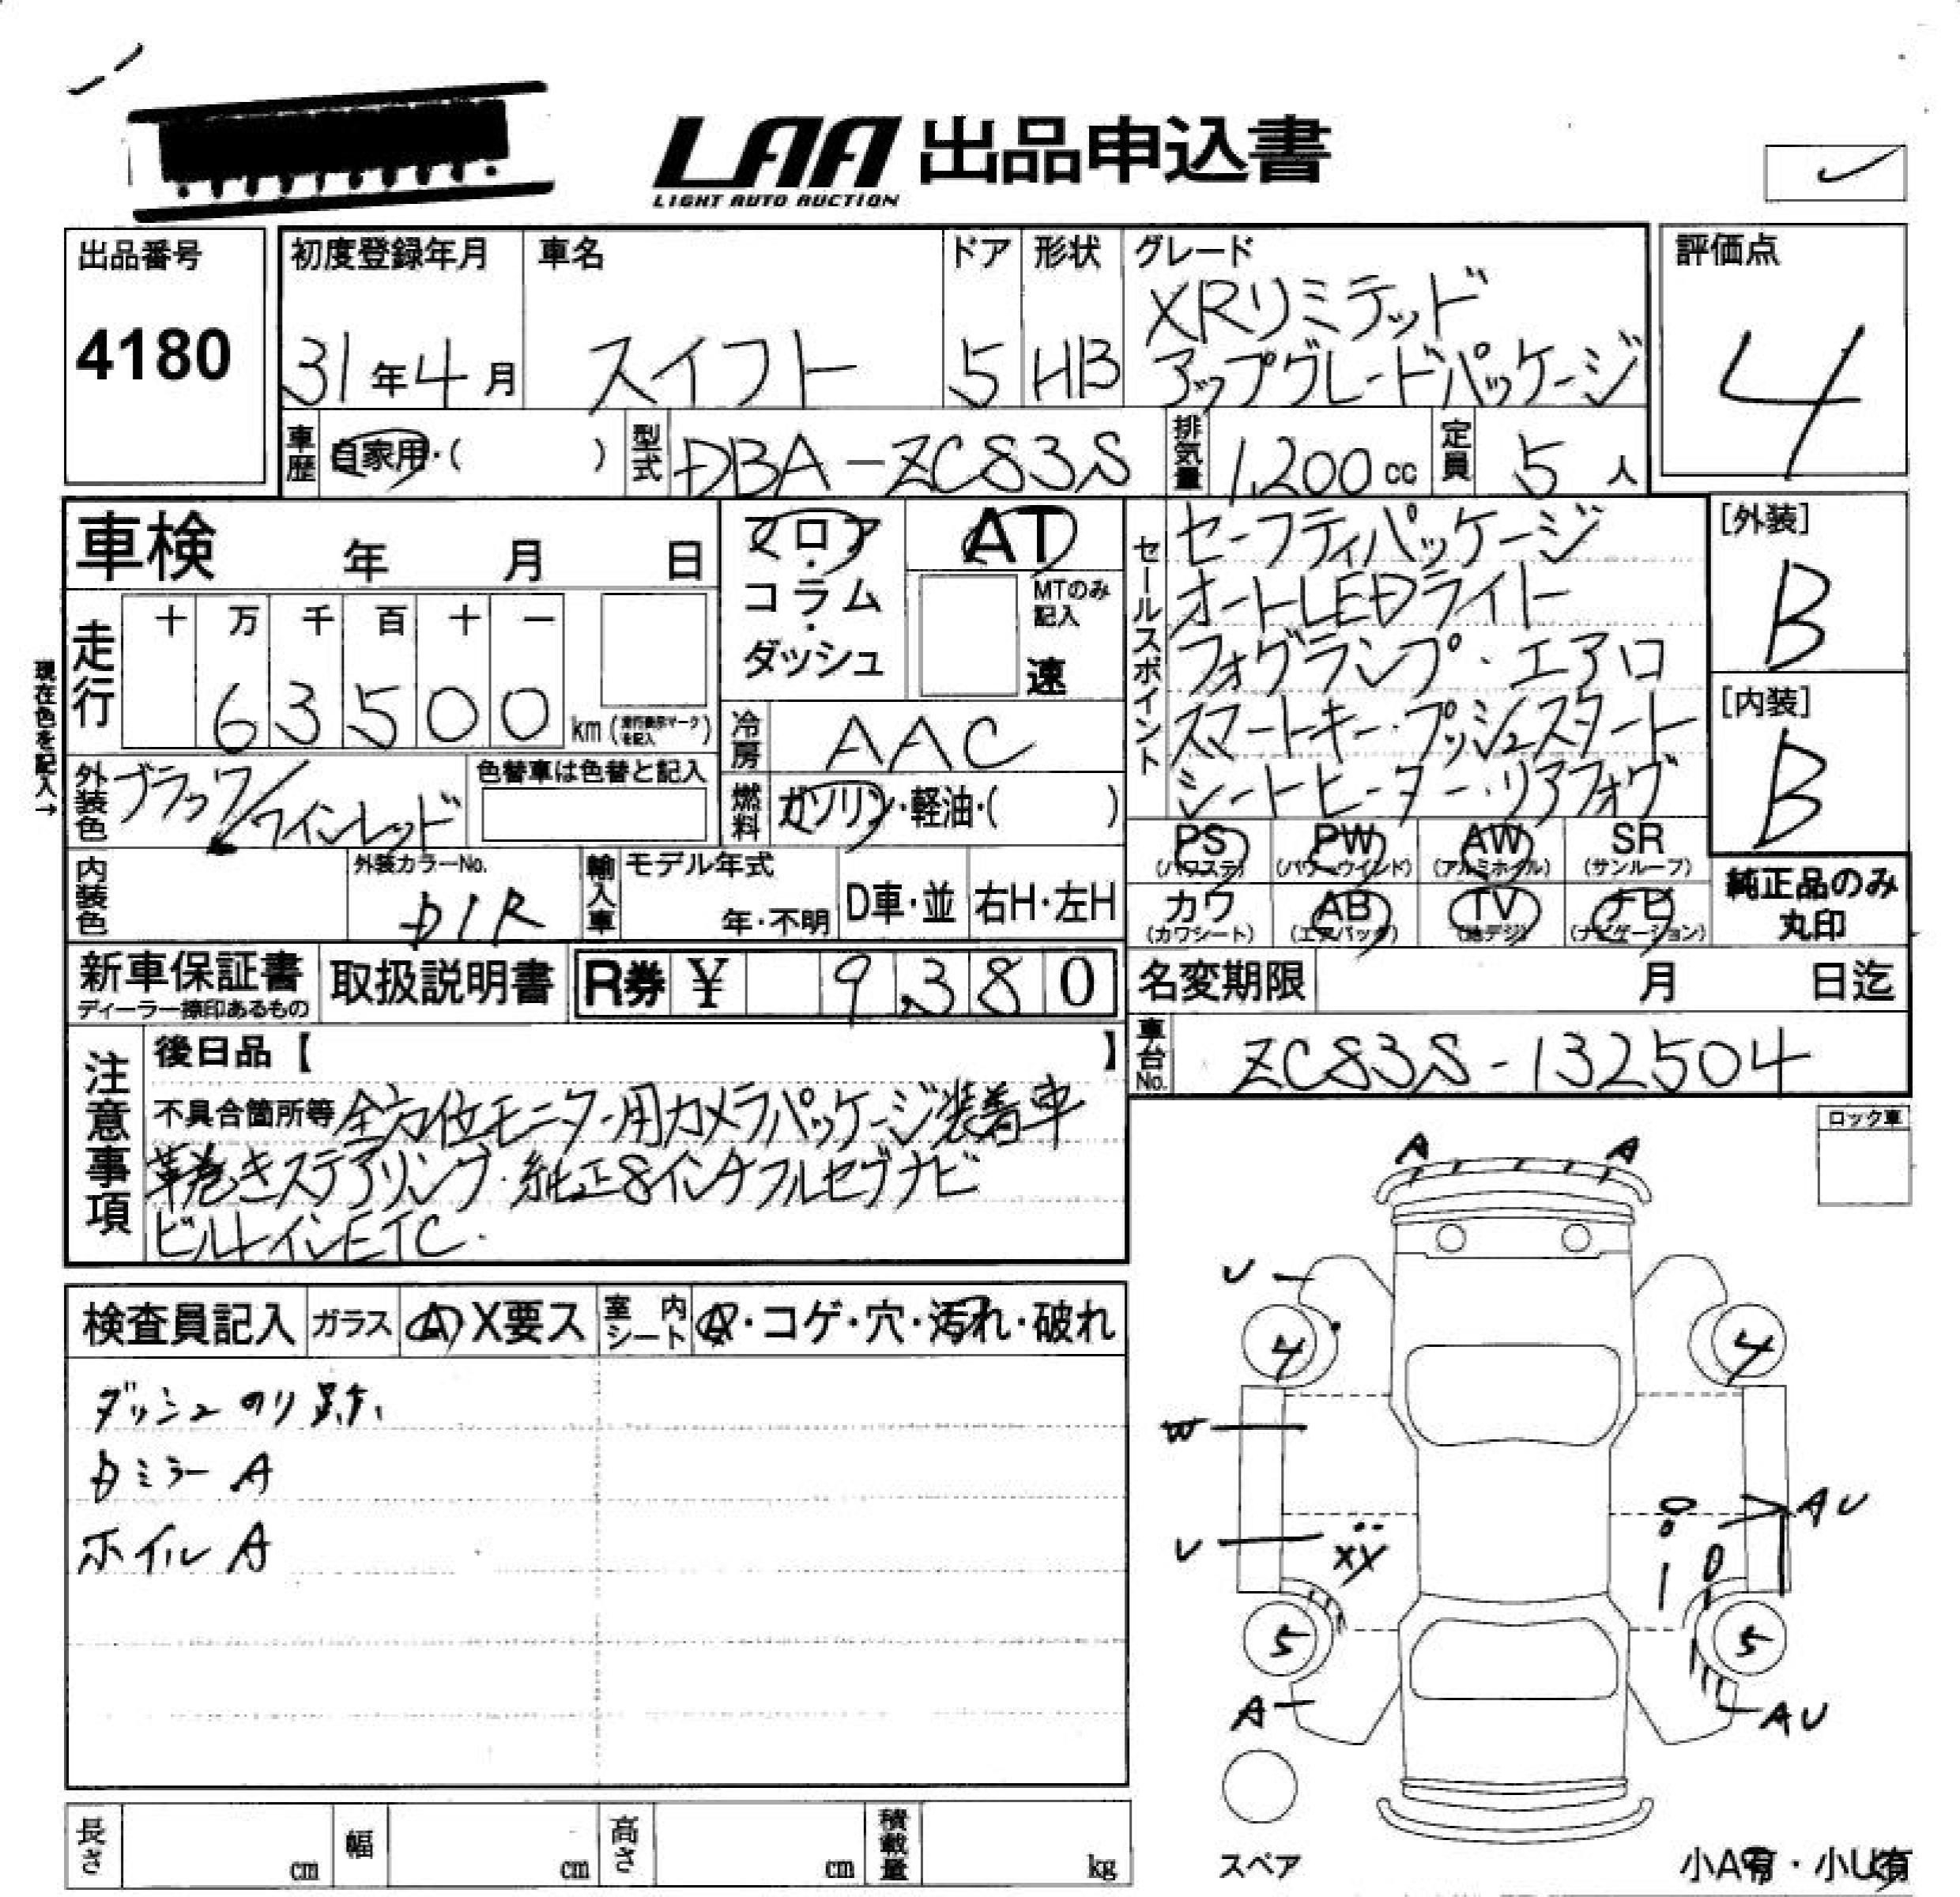 LAA 出品申込書
LIGHT AUTO AUCTION
出品番号
4180
初度登録年月
31年4月
車名
スイフト
ドア
5
形状
HB
グレード
XRリミテッド
アップグレードパッケージ
評価点
4
車歴
自家用・( )
型式
DBA-ZC83S
排気量
1,200cc
定員
5人
車検 年 月 日
フロア・
コラム・
ダッシュ
AT
MTのみ
記入
速
セールスポイント
セーフティパッケージ
オートLEDライト
フォグランプ・エアロ
スマートキー・プッシュスタート
シートヒーター・リアフォグ
[外装]
B
[内装]
B
現在色を記入→
走行
十 万 千 百 十 一
63500
km (走行表示マークを記入)
冷房
AAC
外装色
ブラック/ワインレッド
色替車は色替と記入
燃料
ガソリン・軽油・( )
内装色
外装カラーNo.
D1R
輸入車
モデル年式
年・不明
D車・並
右H・左H
PS (パワステ)
PW (パワーウインド)
AW (アルミホイル)
SR (サンルーフ)
カワ (カワシート)
AB (エアバック)
TV (地デジ)
ナビ (ナビゲーション)
純正品のみ
丸印
新車保証書
ディーラー捺印あるもの
取扱説明書
R券 ¥ 9,380
名変期限 月 日迄
車台No.
ZC83S-132504
注意事項
後日品【 】
不具合箇所等 全方位モニター用カメラパッケージ装着車
革巻きステアリング・純正8インチフルセグナビ
ビルトインETC.
ロック車
検査員記入
ガラス
A X要ス
室内シート
A・コゲ・穴・汚れ・破れ
ダッシュのり跡
Dミラー A
ホイル A
A A
U
4 4
W
AU
U
XX
5 5
A
AU
スペア
小A有・小U有
長さ cm
幅 cm
高さ cm
積載量 kg